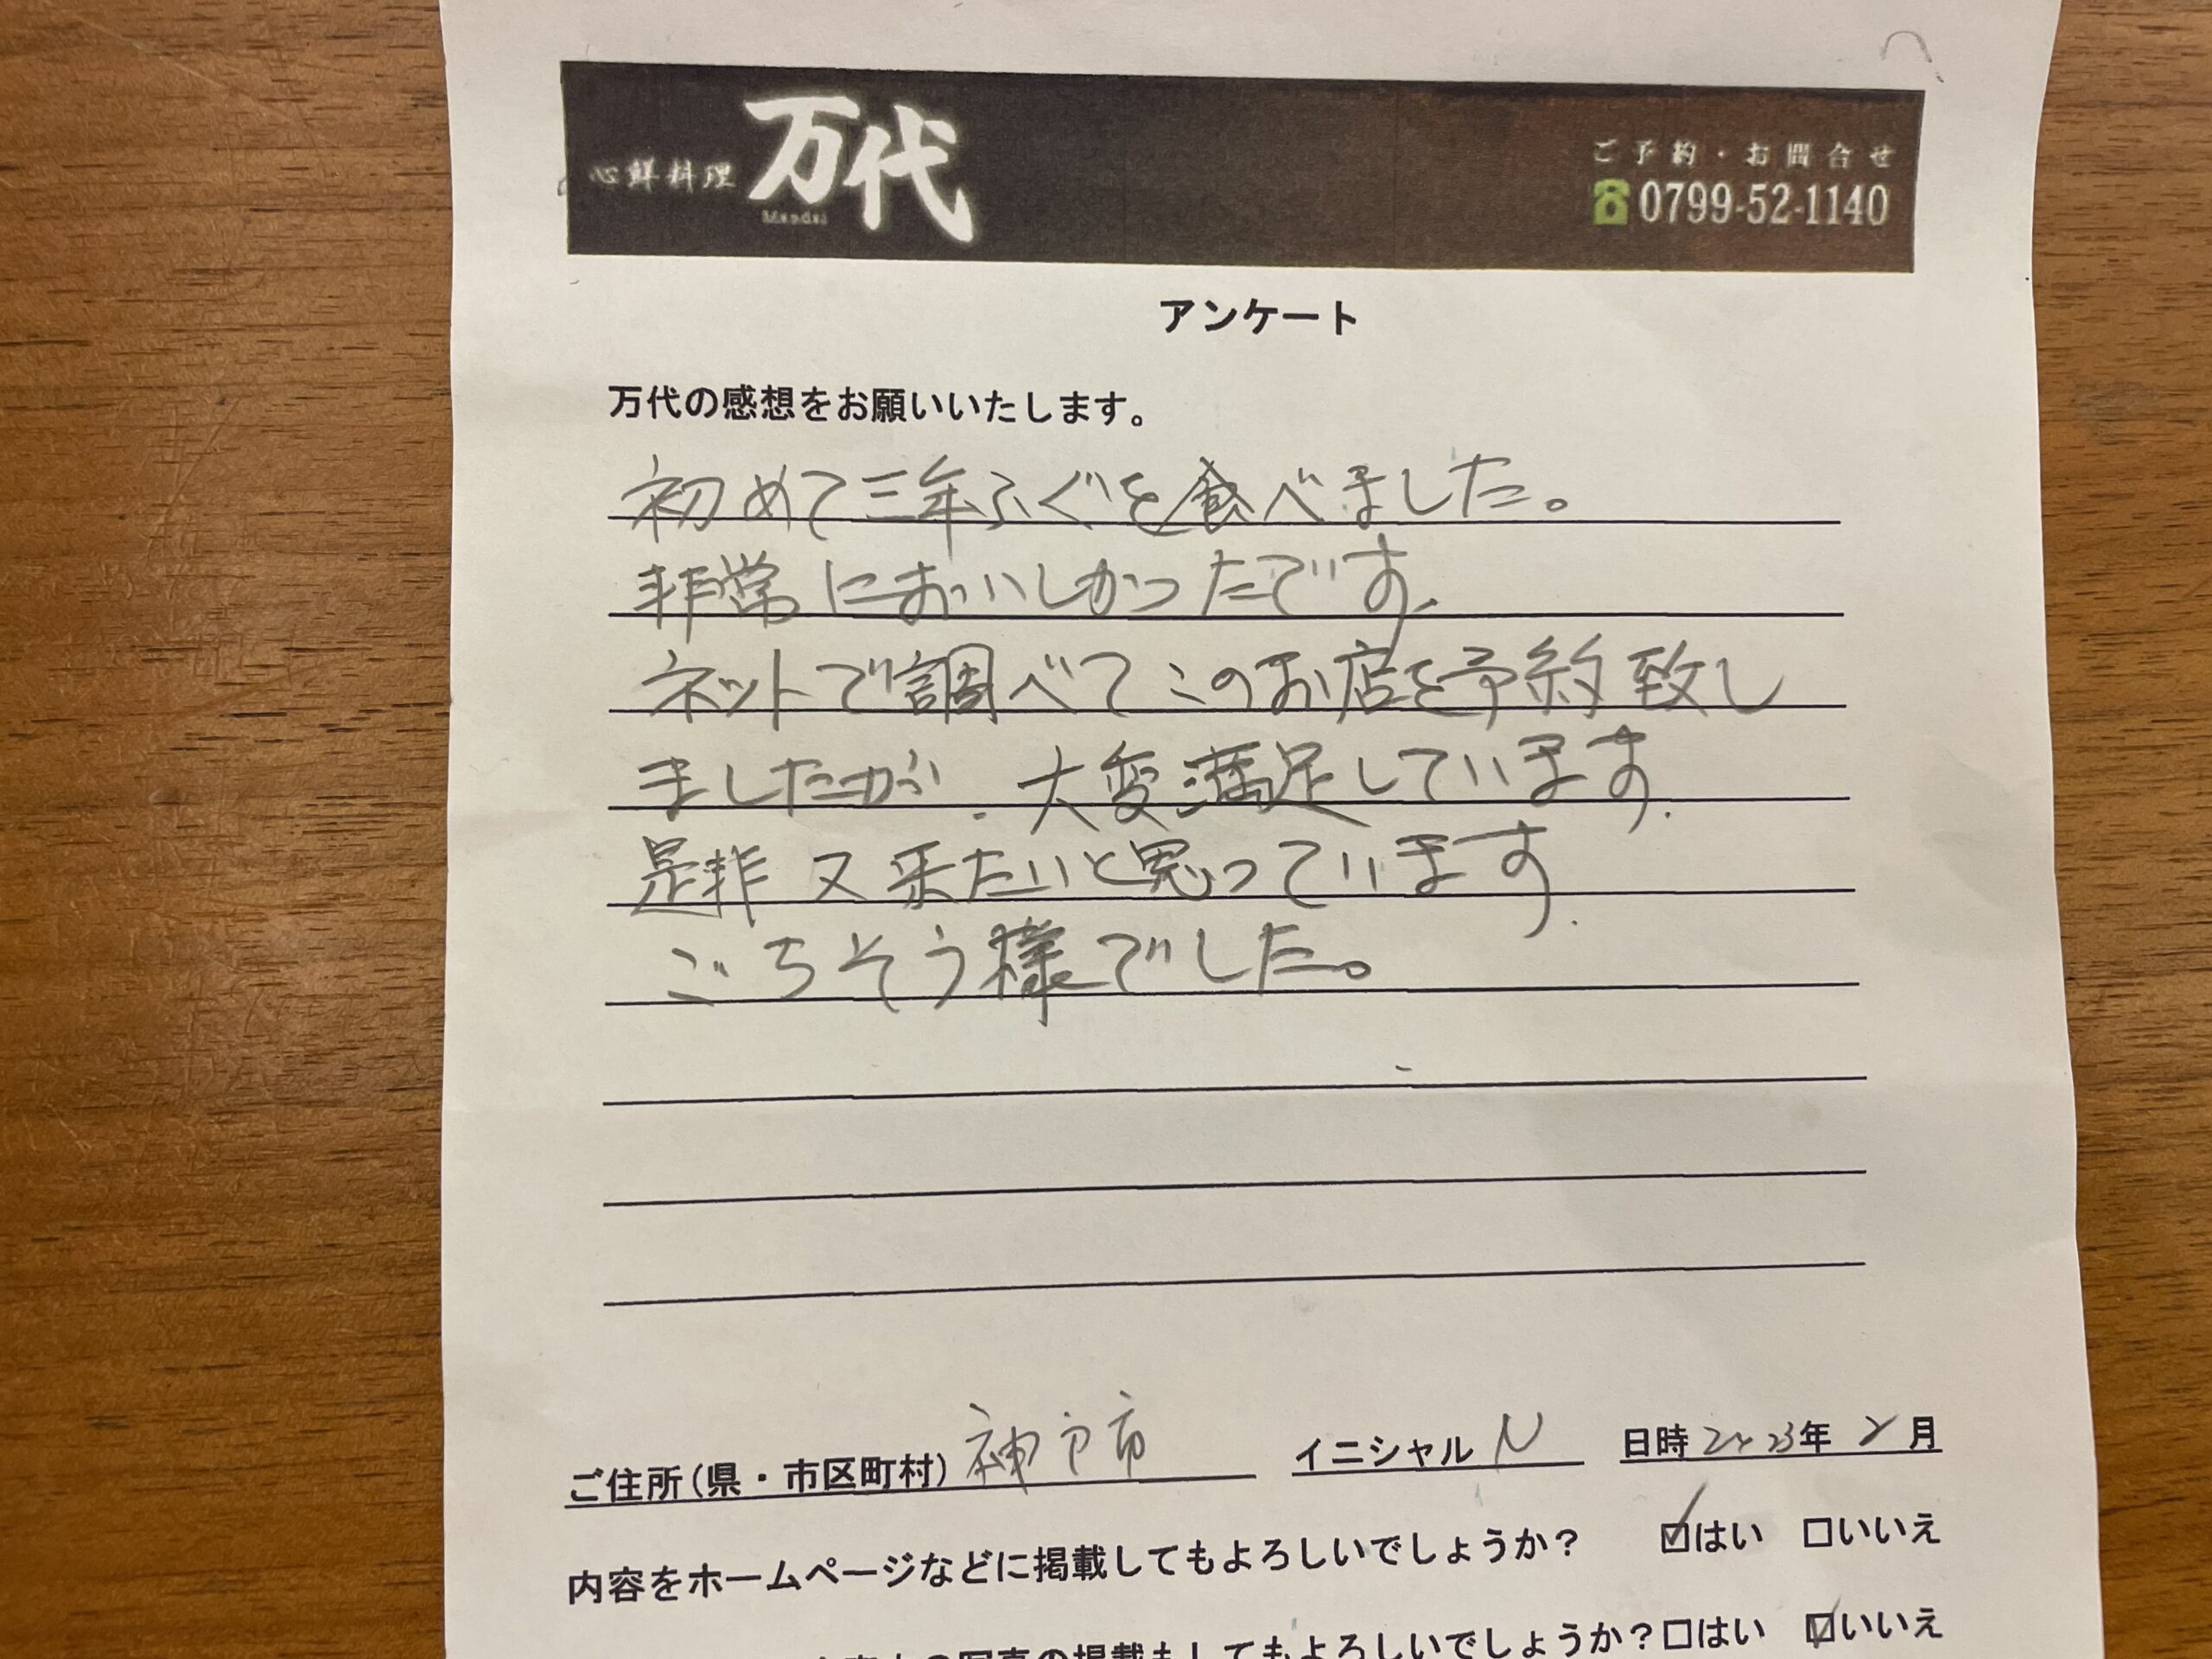 心鮮料理 万代
Mandai
ご予約・お問合せ
0799-52-1140
アンケート
万代の感想をお願いいたします。
初めて三年ふぐを食べました。
非常においしかったです.
ネットで調べてこのお店を予約致し
ましたが. 大変満足しています.
是非又来たいと思っています.
ごちそう様でした。
ご住所(県・市区町村) 神戸市 イニシャル N 日時 2023年 2月
内容をホームページなどに掲載してもよろしいでしょうか? ☑はい □いいえ
写真の掲載もしてもよろしいでしょうか?□はい ☑いいえ